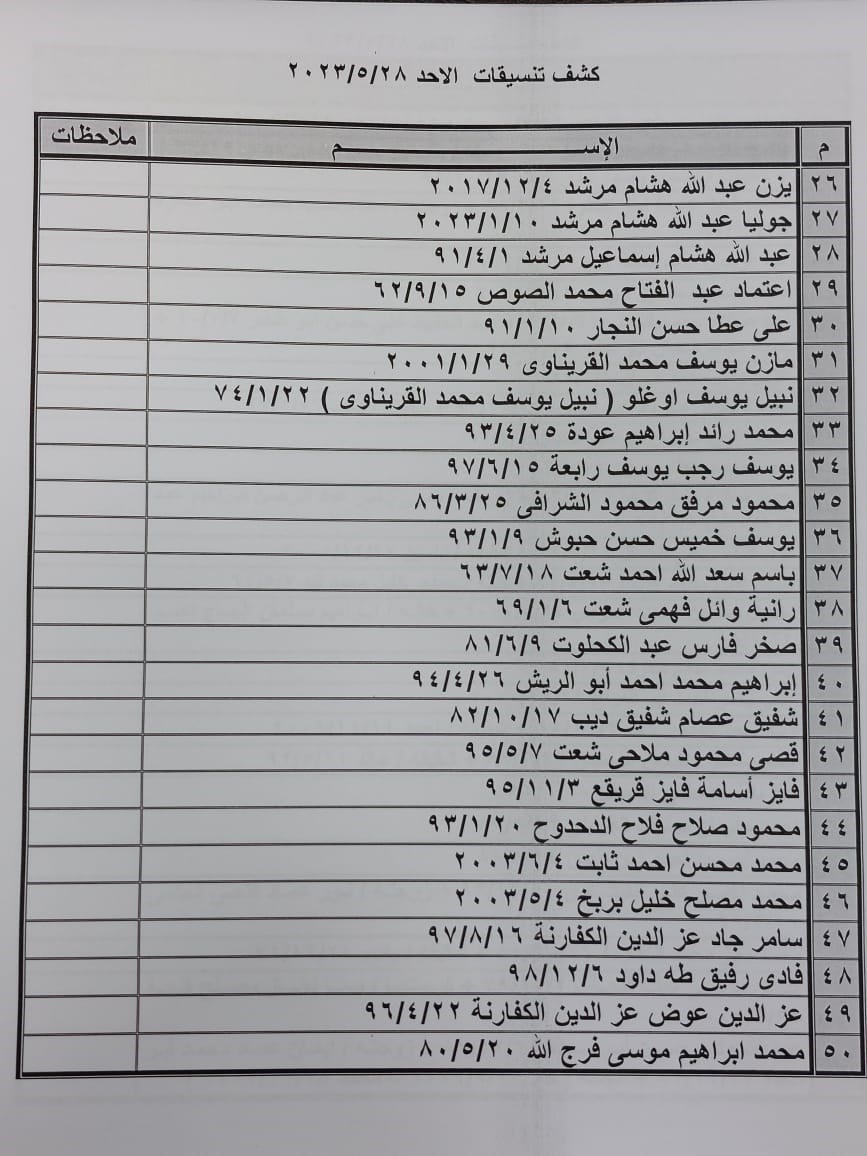 كشف تنسيقات الاحد ٢٠٢٣/٥/٢٨
م الإســـــــــم ملاحظات
٢٦ يزن عبد الله هشام مرشد ٢٠١٧/١٢/٤
٢٧ جوليا عبد الله هشام مرشد ٢٠٢٣/١/١٠
٢٨ عبد الله هشام إسماعيل مرشد ٩١/٤/١
٢٩ اعتماد عبد الفتاح محمد الصوص ٦٢/٩/١٥
٣٠ على عطا حسن النجار ٩١/١/١٠
٣١ مازن يوسف محمد القريناوى ٢٠٠١/١/٢٩
٣٢ نبيل يوسف اوغلو ( نبيل يوسف محمد القريناوى ) ٧٤/١/٢٢
٣٣ محمد رائد إبراهيم عودة ٩٣/٤/٢٥
٣٤ يوسف رجب يوسف رابعة ٩٧/٦/١٥
٣٥ محمود مرفق محمود الشرافى ٨٦/٣/٢٥
٣٦ يوسف خميس حسن حبوش ٩٣/١/٩
٣٧ باسم سعد الله احمد شعت ٦٣/٧/١٨
٣٨ رانية وائل فهمى شعت ٦٩/١/٦
٣٩ صخر فارس عبد الكحلوت ٨١/٦/٩
٤٠ إبراهيم محمد احمد أبو الريش ٩٤/٤/٢٦
٤١ شفيق عصام شفيق ديب ٨٢/١٠/١٧
٤٢ قصى محمود ملاحى شعت ٩٥/٥/٧
٤٣ فايز أسامة فايز قريقع ٩٥/١١/٣
٤٤ محمود صلاح فلاح الدحدوح ٩٣/١/٢٠
٤٥ محمد محسن احمد ثابت ٢٠٠٣/٦/٤
٤٦ محمد مصلح خليل بربخ ٢٠٠٣/٥/٤
٤٧ سامر جاد عز الدين الكفارنة ٩٧/٨/١٦
٤٨ فادى رفيق طه داود ٩٨/١٢/٦
٤٩ عز الدين عوض عز الدين الكفارنة ٩٦/٤/٢٢
٥٠ محمد ابراهيم موسى فرج الله ٨٠/٥/٢٠